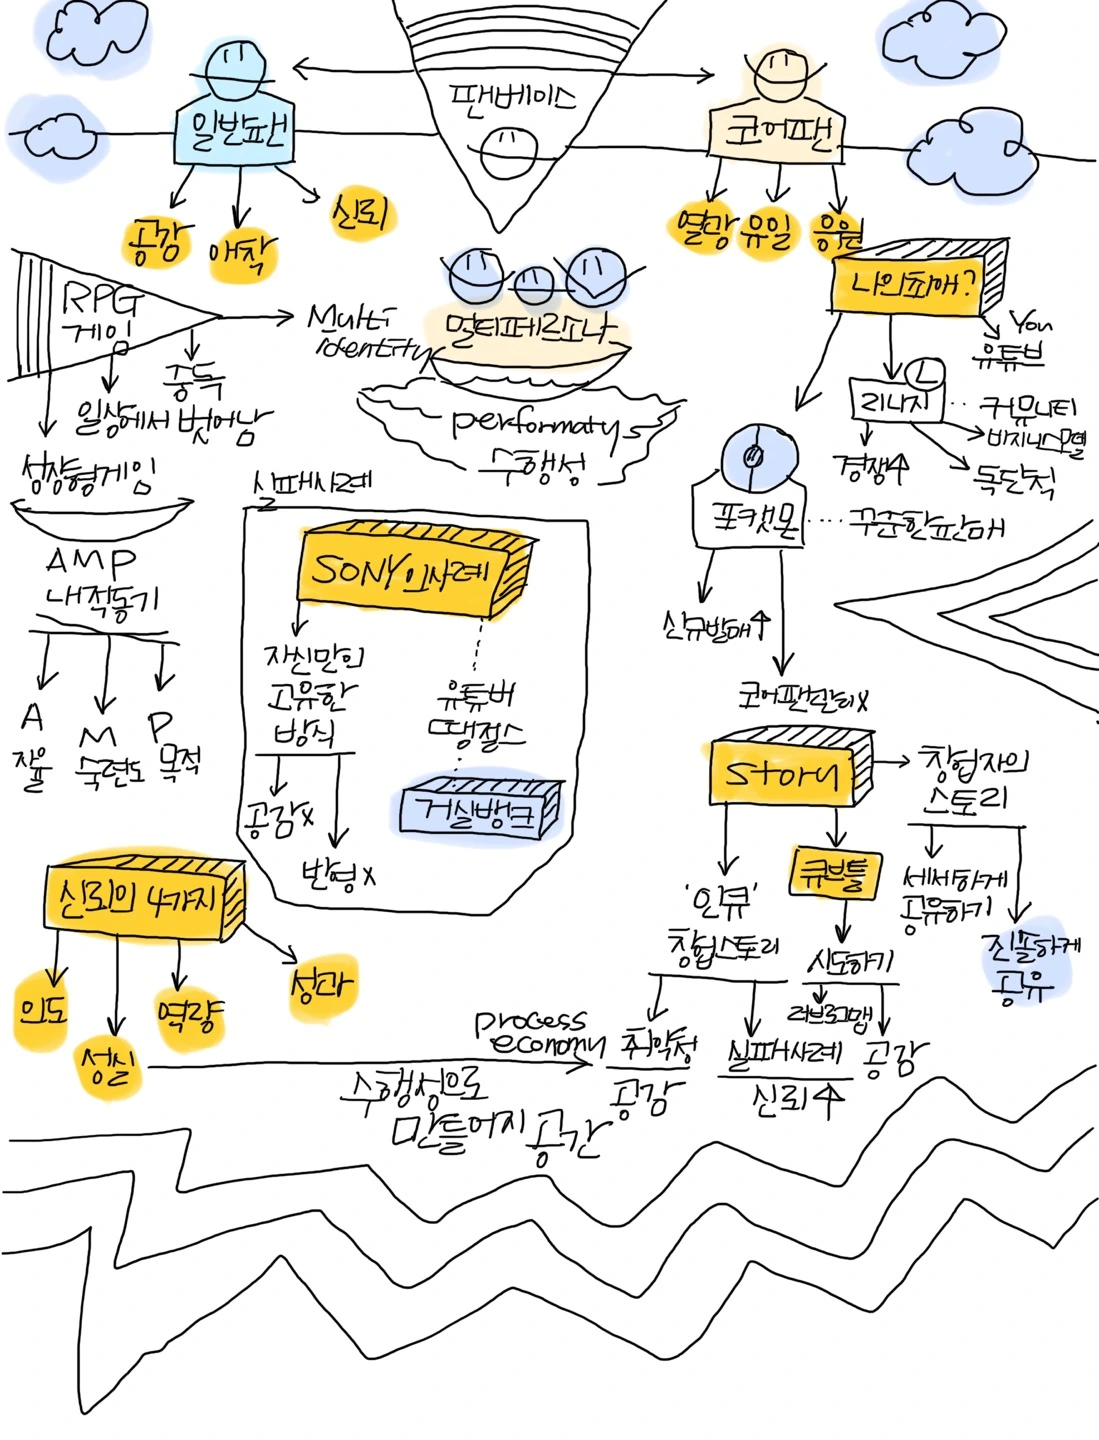 팬베이스
일반팬
공감
애착
신뢰
코어팬
열광
유일
응원
RPG
게임
중독
일상에서 벗어남
성장형게임
AMP
내적동기
A
자율
M
숙련도
P
목적
Multi
identity
멀티페르소나
performaty
수행성
나의파애?
You
유튜브
L
리니지
커뮤니티
비지니스모델
경쟁↑
독단적
포켓몬
꾸준한판매
신규발매↑
코어팬관리x
실패사례
SONY의사례
자신만의
고유한
방식
공감x
반영x
유튜버
땡절스
거실뱅크
Story
창업자의
스토리
세세하게
공유하기
진솔하게
공유
큐브틀
시도하기
러브로그맵
공감
'인큐'
창업스토리
취약성
공감
실패사례
신뢰↑
신뢰의 4가지
의도
성실
역량
성과
process
economy
수행성으로
만들어지 공간